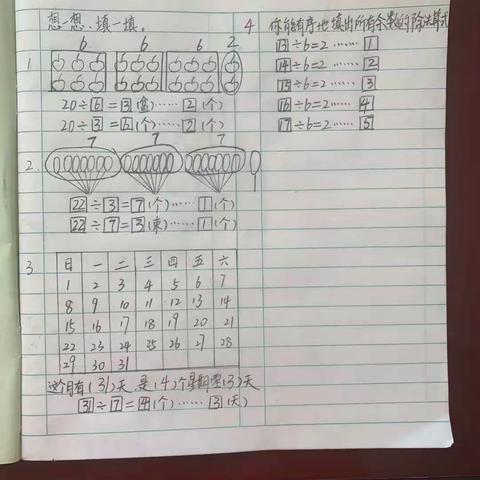 想一想、填一填。
6 6 6 2
1.
20÷6=3(盒)……2(个)
20÷3=6(个)……2(个)
7 7 7
2.
22÷3=7(个)……1(个)
22÷7=3(束)……1(个)
3.
日 一 二 三 四 五 六
1 2 3 4 5 6 7
8 9 10 11 12 13 14
15 16 17 18 19 20 21
22 23 24 25 26 27 28
29 30 31
这个月有(31)天,是(4)个星期零(3)天
31÷7=4(个)……3(天)
4 你能有序地填出所有余数的除法算式
13÷6=2……1
14÷6=2……2
15÷6=2……3
16÷6=2……4
17÷6=2……5